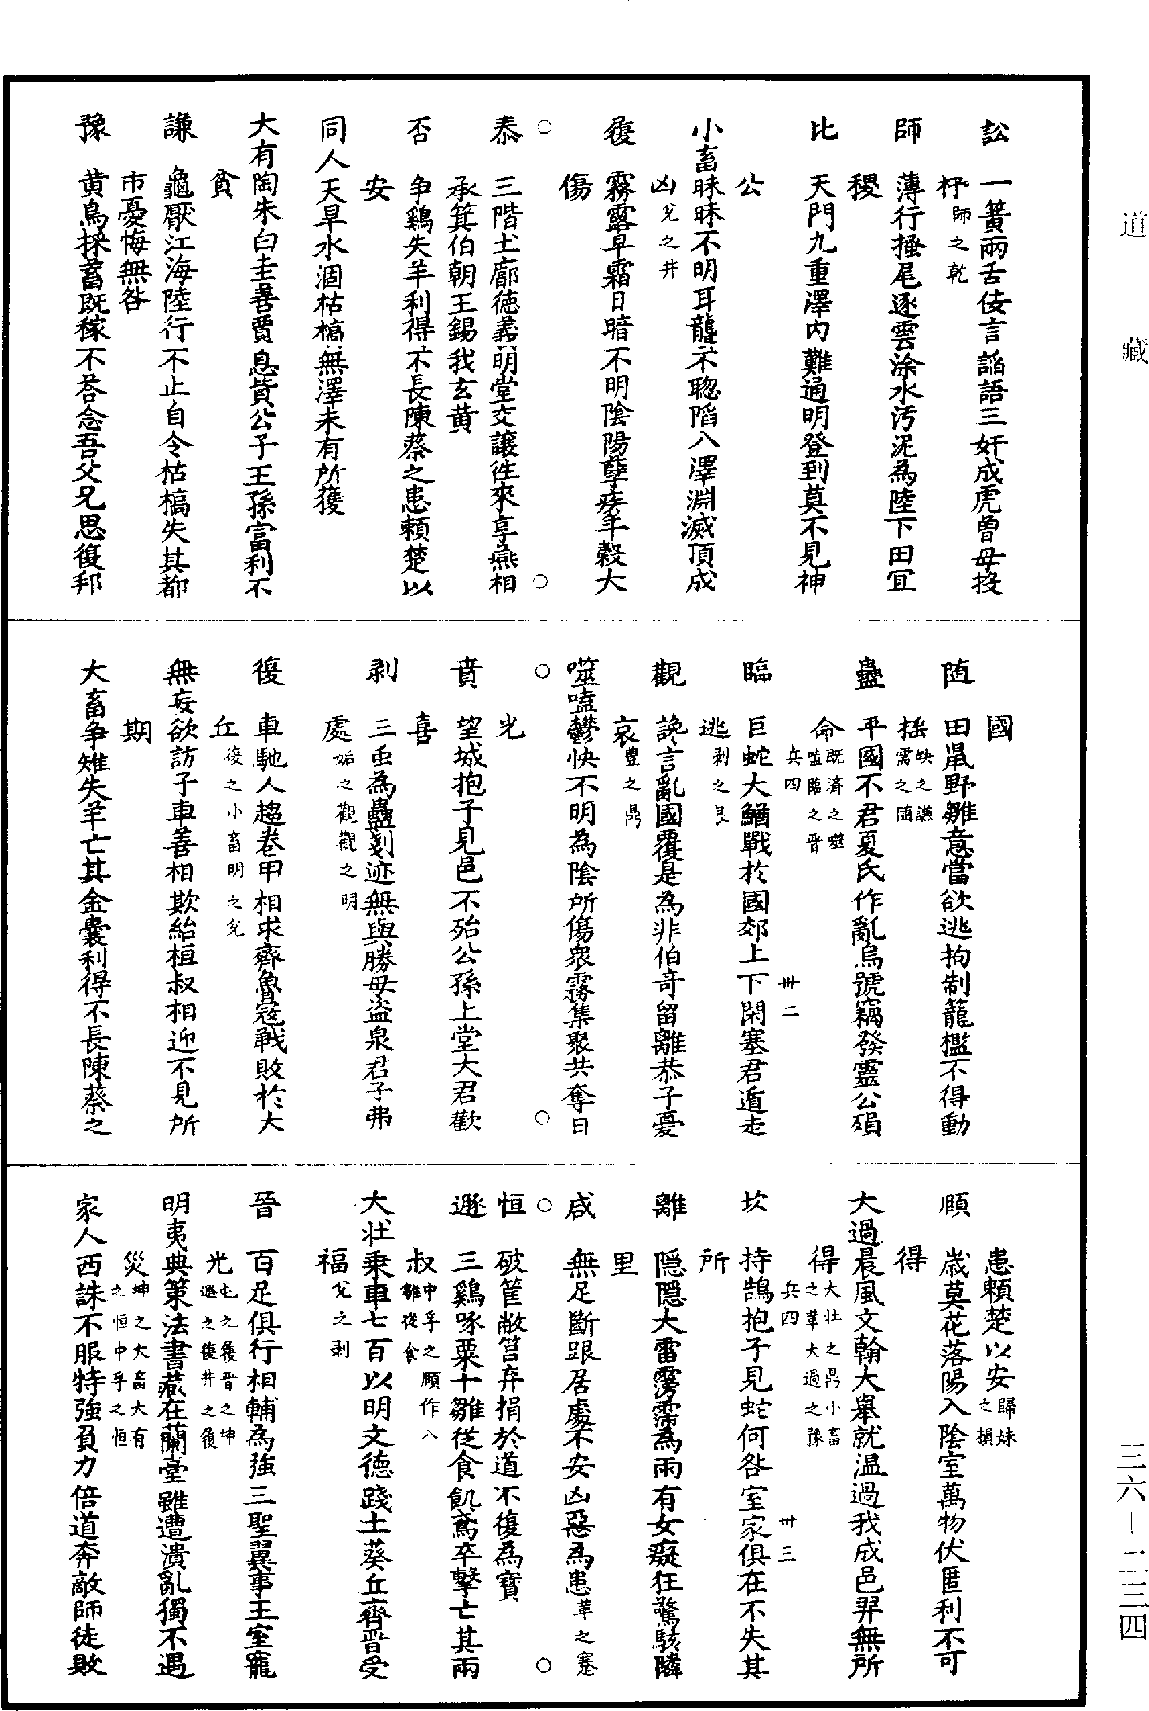 道藏
三六—二三四
訟　一簧兩舌佞言謟語三奸成虎曾母投
杼師之乾
師　薄行搔尾逐雲除水污泥為陸下田宜
稷
比　天門九重澤內難通明登到莫不見神
公
小畜昧昧不明耳聾不聰陷八澤淵滅頂成
凶兌之井
履　霧露早霜日暗不明陰陽孽疾年穀大
傷
泰　三階土廓德義明堂交讓往來享燕相
承箕伯朝王錫我玄黃
否　争鷄失羊利得不長陳蔡之患賴楚以
安
同人天旱水涸枯槁無澤未有所獲
大有陶朱白圭善賈息貲公子王孫富利不
貪
謙　龜厭江海陸行不止自令枯槁失其都
市憂悔無咎
豫　黃鳥採蓄既稼不荅念吾父兄思復邦
國
随　田鼠野雛意當欲逃拘制籠檻不得動
揺睽之謙需之隨
蠱　平國不君夏氏作亂烏號竊發靈公殞
命既濟之噬嗑臨之晉
兵四　卅二
臨　巨蛇大鰌戰於國郊上下閑塞君遁走
逃剥之艮
觀　讒言亂國覆是為非伯奇留離恭子憂
哀豐之鼎
噬嗑鬱怏不明為陰所傷衆霧集聚共奪日
光
賁　望城抱子見邑不殆公孫上堂大君歡
喜
剥　三䖝為蠱剗迹無與勝母盗泉君子弗
處姤之觀觀之明
復　車馳人趨卷甲相求齊魯寇戰敗於大
丘復之小畜明之兌
無妄欲訪子車善相欺紿桓叔相迎不見所
期
大畜争雉失羊亡其金囊利得不長陳蔡之
患賴楚以安歸妹之損
頤　歲莫花落陽入陰室萬物伏匿利不可
得
大過晨風文翰大舉就温過我成邑羿無所
得大壯之鼎小畜之革大過之豫
兵四　卅三
坎　持鵠抱子見蛇何咎室家俱在不失其
所
離　隱隱大雷霶霈為雨有女癡狂驚駭鄰
里
咸　無足斷跟居處不安凶惡為患革之蹇
恒　破筐敝筥弃捐於道不復為寶
遯　三鷄啄粟十雛從食飢鳶卒擊亡其兩
叔中孚之頤作八雛從食
大壯乘車七百以明文德踐土葵丘齊晉受
福兌之剥
晉　百足俱行相輔為強三聖翼事王室寵
光屯之履晉之坤遯之復井之復
明夷典策法書藏在蘭臺雖遭潰亂獨不遇
災坤之大畜大有之恒中孚之恒
家人西誅不服恃強負力倍道奔敵師徒敗